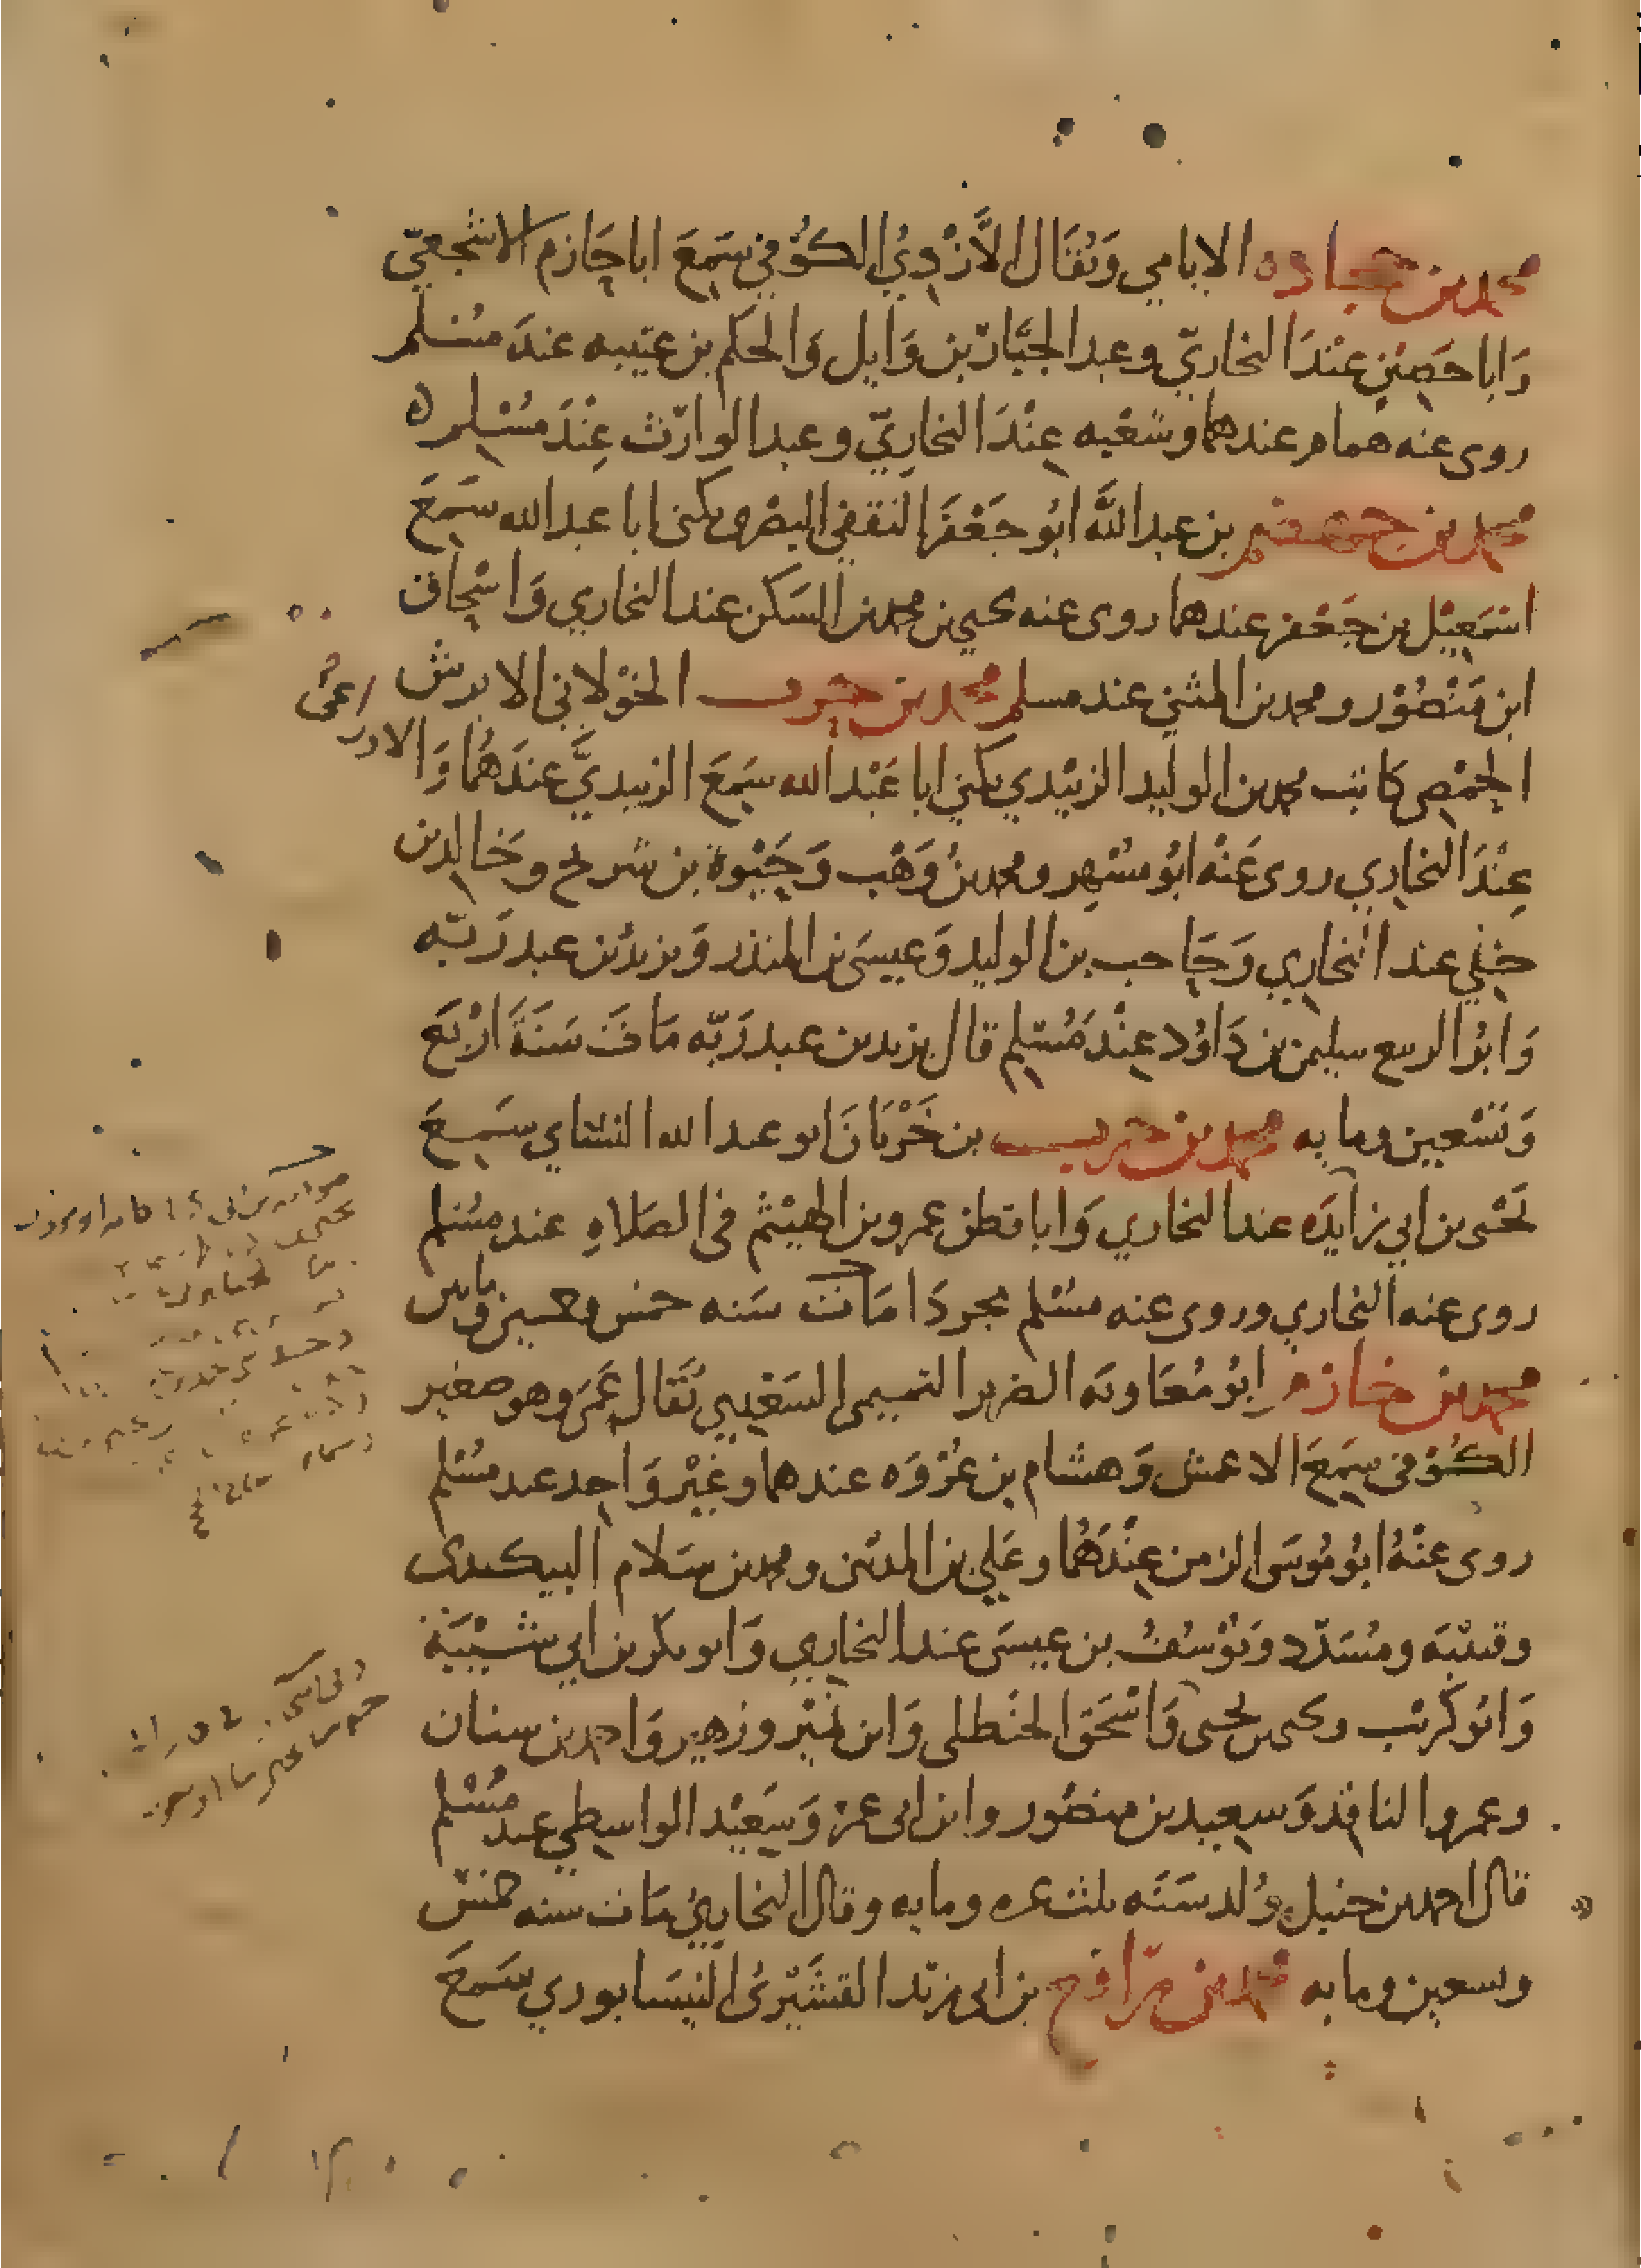 محمد بن جحاده الايامي وَيُقَال الاَزْدِيُّ الكوُفي سَمِعَ ابا حَازم الاشجعيّ
وَابا حَصِين عندَ البخاريّ وعبد الجبَّار بن وَايل وَالحكم بن عتيبه عندَ مسُلم
روى عنه همام عندهما وشعبه عِنْدَ البخاريّ وعبد الوارث عِنْدَ مسُلم
محمد بن جهضم بن عبد اللَّه ابوُ جَعْفَر الثقفي البصْرى يكنى ابا عبد الله سَمِعَ
اسْمَعِيْل بن جَعْفر عندهما روى عنه يحيى بن محمد بن السَكن عند البخاري وَاسْحاق
ابن مَنْصُوْر ومحمد بن المثنى عند مسلم محمد بن حرب الخوْلاني الابرش
الحِمْصِي كاتب محمد بن الوليد الزبَيْدي يكنى ابا عَبْد الله سَمِعَ الزبيديَّ عندَهُمَا وَالاوزاعى
عِنْدَ البخاري روى عَنْهُ ابوُ مسُهِر ومحمد بنُ وَهْب وَحَيْوة بن شريح وخالد بن
خلي عند البخاري وَحَاجب بن الوليد وَعيسَى بن المنذر وَيزيد بن عبد رَبّه
وَابوُ الربيع سليمن بن دَاوُد عِنْدَ مسُلم قال يزيد بن عبد رَبّه مَات سَنَةَ ارْبَع
وَتسْعين وما يه محمد بن حرب بن خَرْبَان ابو عبد الله النشاي سَمِعَ
يَحْيى بن ابي زايدَه عند البخاري وَابا قطن عمرو بن الهيْثم في الصَلاهِ عند مسُلم
روى عنه البخاري وروى عنه مسُلم مجردَا مَات سَنه خمس وخمسين وماتين
محمد بن خازم ابوُ مُعَاويَه الضرير التميمى السَعْدِيي يُقَال عَمِيَ وهو صغير
الكُوْفي سَمِعَ الاعمش وَهشام بن عُرْوَه عندهما وغَيْر وَاحِد عند مسُلم
روى عَنْهُ ابوُ موُسَى الزمن عِنْدَهُمَا وعَلي بن المديْنى ومحمد بن سَلام البيكندى
وقتيْبَه ومسَدّد وَيُوْسُفُ بن عيسَى عند البخاري وَابو بكر بن ابي شَيْبَة
وَابوُ كريْب ويحيى بن يحيى وَاسْحَق الحنْظلى وَابن نُميْر وزهير وَاحمد بن سنان
وعمرو الناقد وَسعيد بن منصوُر وابن ابى عمر وَسَعيْد الواسطي عند مُسْلم
قال احمد بن حنبل وُلد سَنَه ثلث عشره ومايه وقال البخاريّ مَات سنه خمس
وتسعين ومايه محمد بن رَافع بن ابى زيد القشَيْرىُّ النيسَابوري سَمعَ